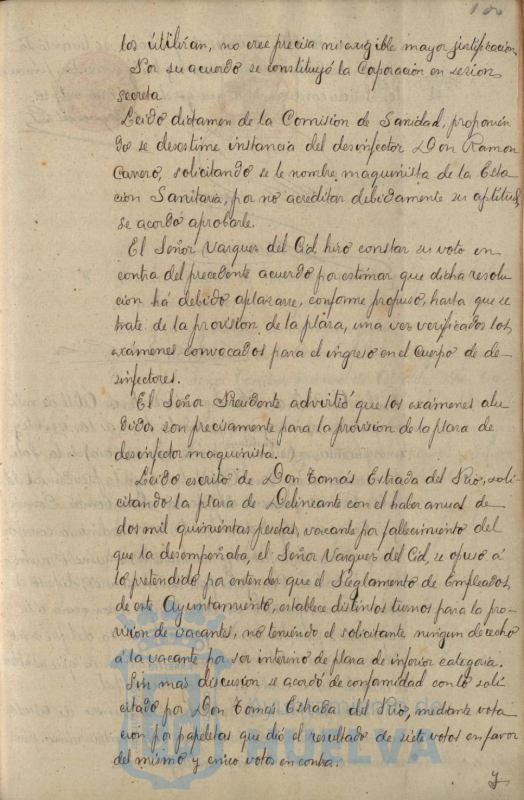 100
los utilizan, no cree precisa ni exigible mayor justificación.
Por su acuerdo se constituyó la Corporación en sesión
secreta.
Leido dictamen de la Comisión de Sanidad, proponien
do se desestime instancia del desinfector Don Ramon
Carrero, solicitando se le nombre maquinista de la Esta
ción Sanitaria, por no acreditar debidamente su aptitud,
se acordó aprobarle.
El Señor Vazquez del Cid, hizo constar su voto en
contra del precedente acuerdo por estimar que dicha resolu
ción há debido aplazarse, conforme propuso, hasta que se
trate de la provision de la plaza, una vez verificados los
exámenes convocados para el ingreso en el Cuerpo de de-
sinfectores.
El Señor Presidente advirtió que los exámenes alu
didos son precisamente para la provision de la plaza de
desinfector maquinista.
Leido escrito de Don Tomás Estrada del Rio, soli-
citando la plaza de Delineante con el haber anual de
dos mil quinientas pesetas, vacante por fallecimiento del
que la desempeñaba, el Señor Vazquez del Cid, se opuso á
lo pretendido por entender que el Reglamento de Empleados,
de este Ayuntamiento, establece distintos turnos para la pro-
vision de vacantes, no teniendo el solicitante ningun derecho
á la vacante por ser interino de plaza de inferior categoria.
Sin más discusion se acordó de conformidad con lo soli-
citado por Don Tomás Estrada del Rio, mediante vota
cion por papeletas que dió el resultado de siete votos en favor
del mismo y cinco votos en contra.
y
HUELVA